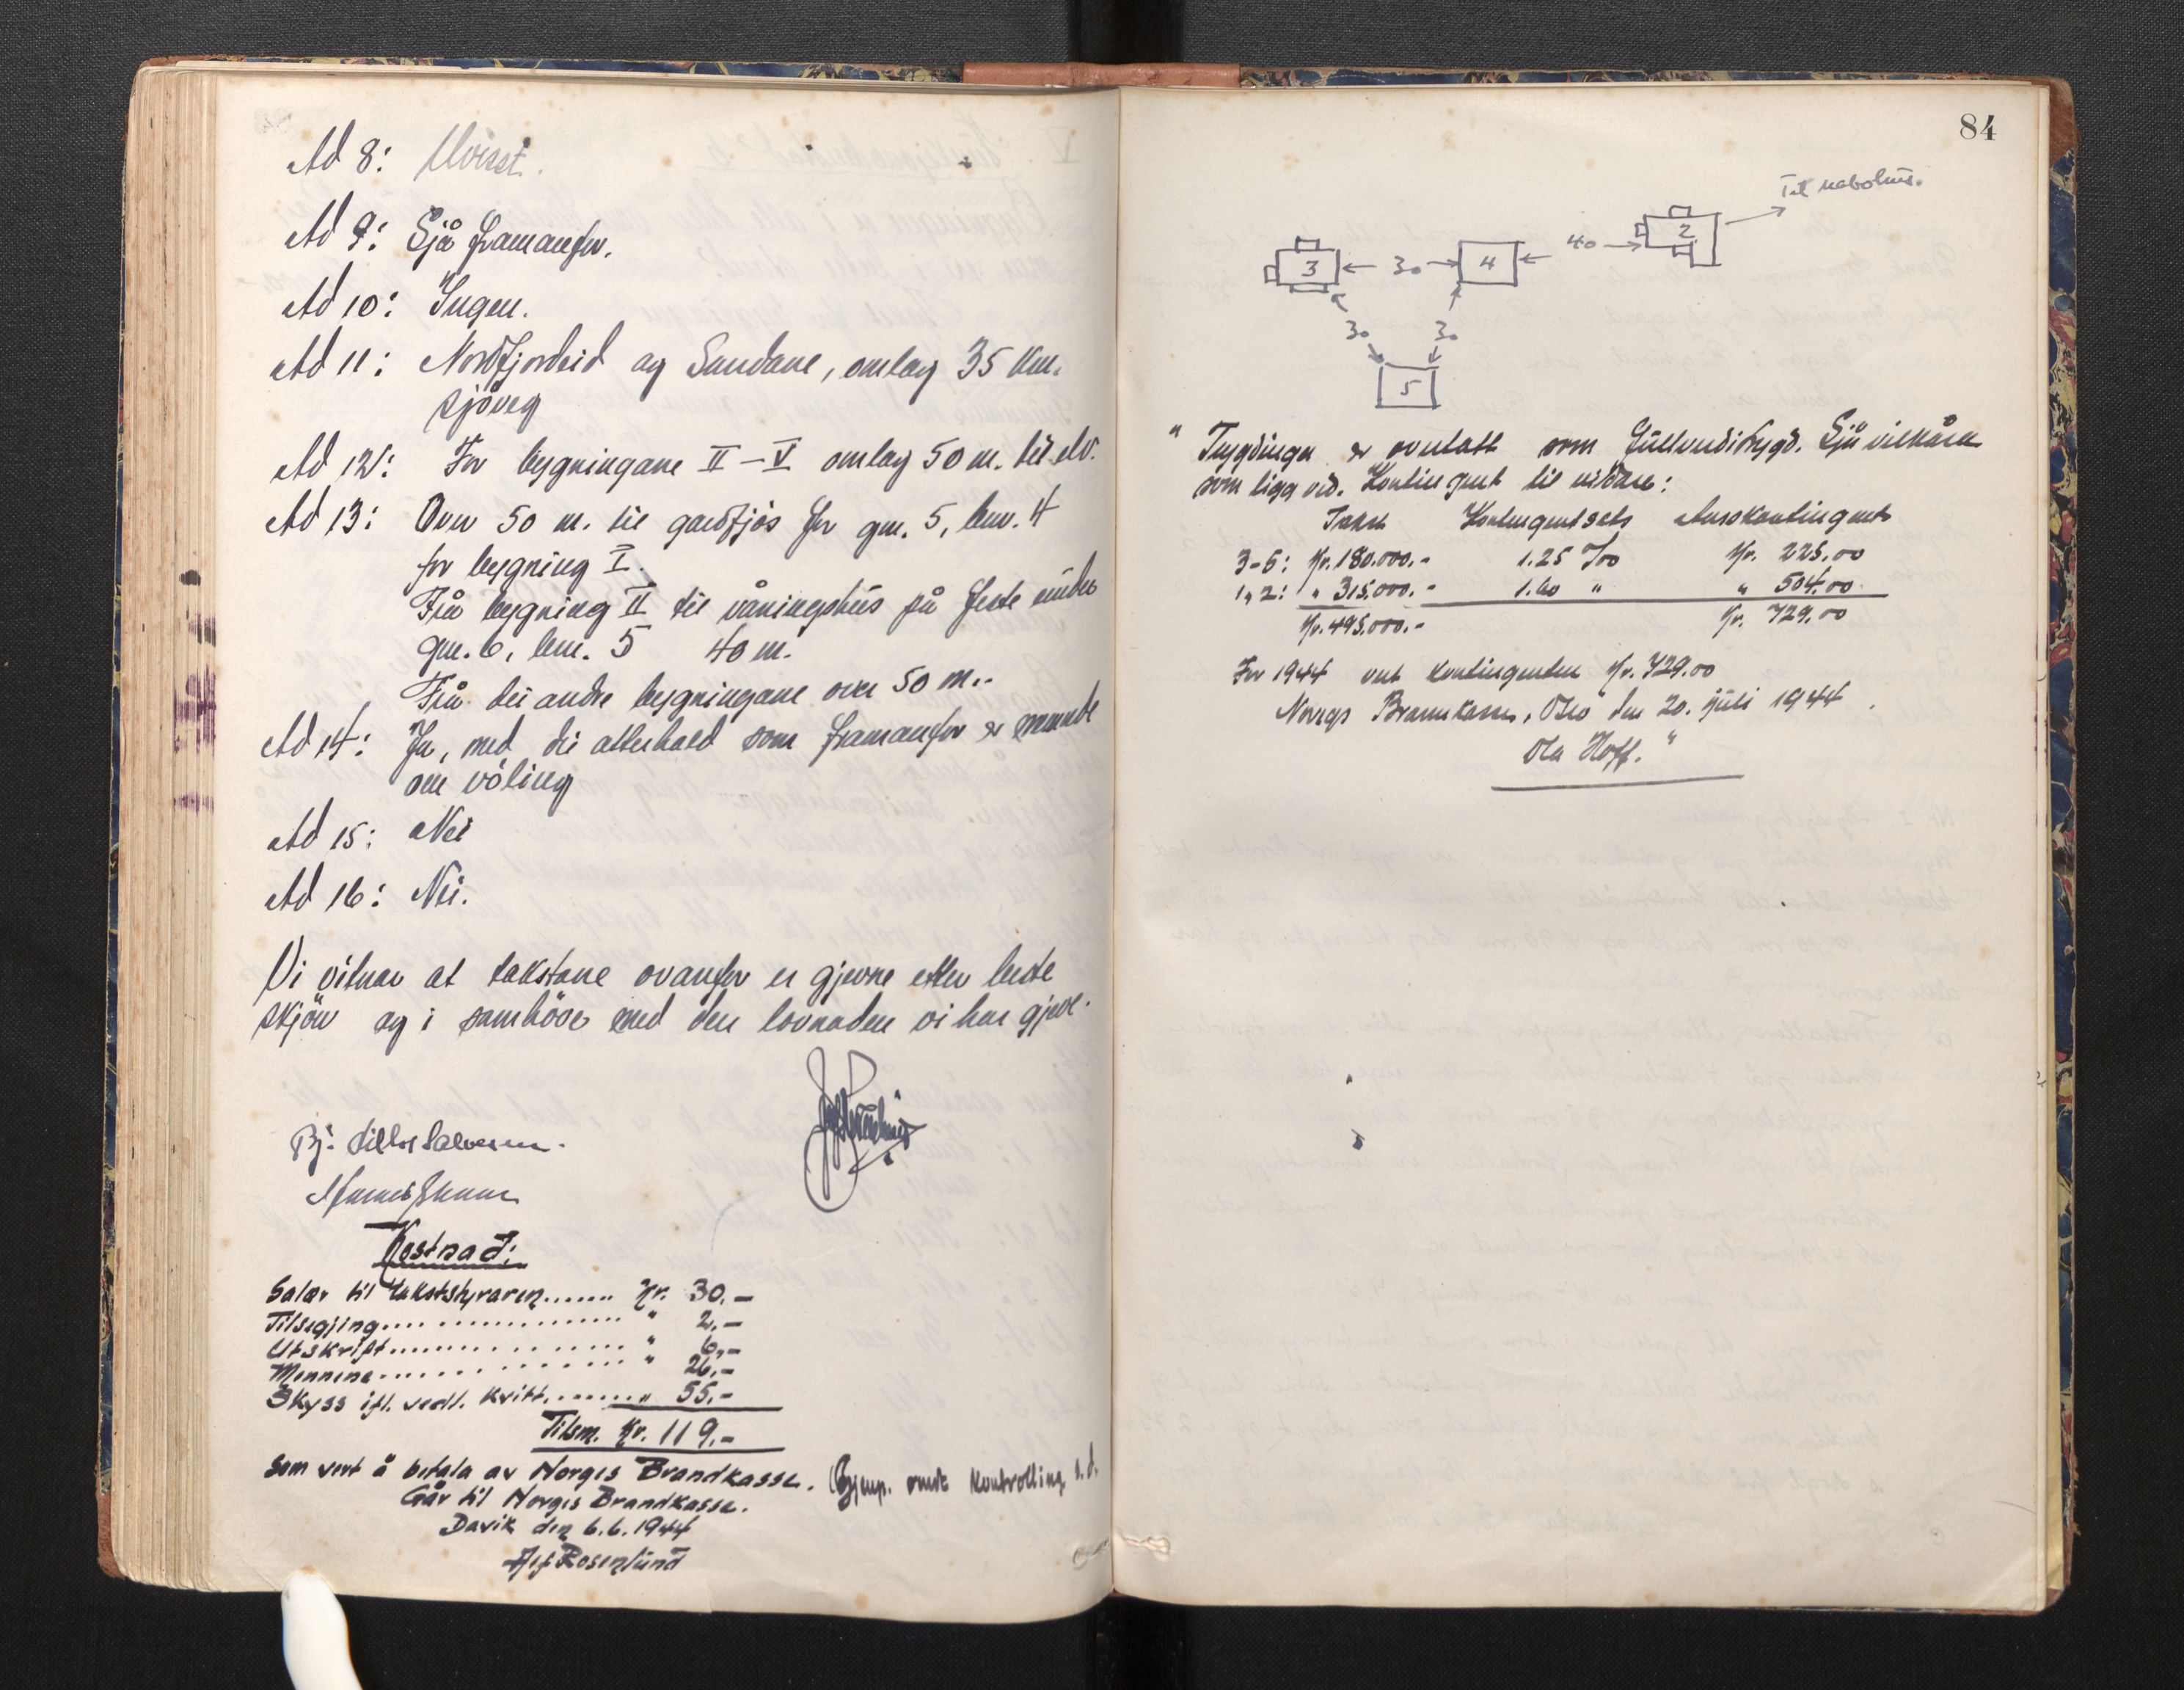 Ad 8: Uvisst.
Ad 9: Sjå framanfor.
Ad 10: Ingen.
Ad 11: Nordfjordeid og Sandane, omlag 35 km.
sjöveg
Ad 12: For bygningane II-V omlag 50 m. til elv.
Ad 13: Over 50 m. til gardfjös for gnr. 5, bnr. 4
for bygning I.
Frå bygning II til våningshus på feste under
gnr. 6, bnr. 5 40 m.
Frå dei andre bygningane over 50 m.
Ad 14: Ja, med dei atterhald som framanfor er nemnde
om völing
Ad 15: Nei
Ad 16: Nei.
Vi vitnar at takstane ovanfor er gjevne etter beste
skjön og i samhöve med den lovnaden vi har gjeve.
Kostnad:
Salær til takststyraren....... Kr. 30.-
Tilsegjing.... " 2,-
Utskrift.... " 6,-
Mennene.... " 26,-
Skyss ifl. vedl. kvitt. ....... " 55.-
Tilsm. Kr. 119.-
Som vert å betala av Norges Brandkasse.
Går til Norges Brandkasse.
Davik den 6.6.1944
Rosenlund
84
Til nabohus.
2
40
3
30
4
30
30
5
" Trygdinga er overtatt som fullverditrygd. Sjå vilkåra
som ligg ved. Kontingent til vidare:
Takst Kontingentsats Årskontingent
3-5: Kr. 180.000.- 1.25 ‰ Kr. 225.00
1, 2: " 315.000.- 1.60 " " 504.00
Kr. 495.000.- Kr. 729.00
For 1944 vert kontingenten Kr. 729.00
Noregs Brannkasse, Oslo den 20. juli 1944.
Ola Hoff."